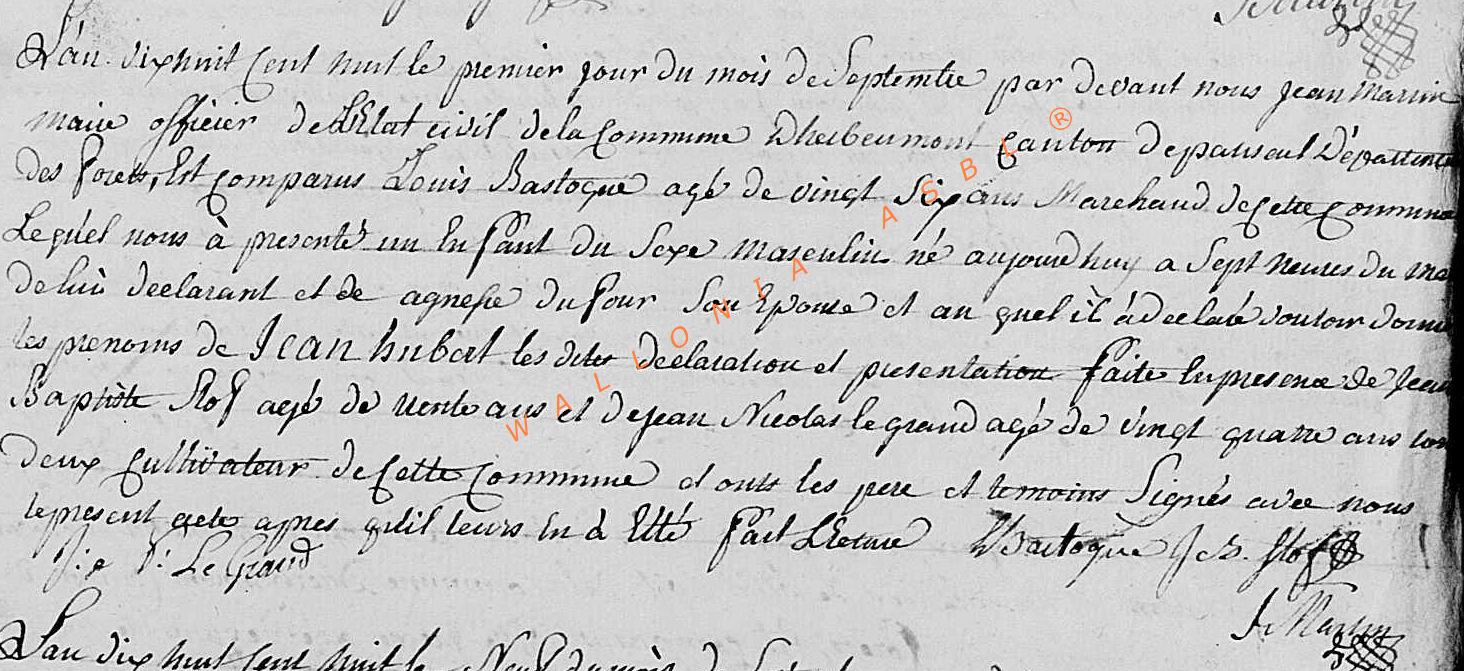 J Martin
L'an dixhuit Cent huit le premier jour du mois de Septembre par devant nous Jean Martin
maire officier de L'Etat civil de la Commune D'herbeumont Canton de paliseul Département
des forets, Est comparus Louis Bastogne agé de vingt Six ans Marchand de Cette Commune
Lequel nous à presenté un Enfant du Sexe masculin né aujourd huy a Sept heures du ma
de lui declarant et de agnesse Dufour Son Epouse et au quel il à declaré vouloir donner
les prenoms de Jean hubert les dites declaration et presentation faite En presence de Jean
Baptiste Stof agé de trente ans et de Jean Nicolas le grand agé de vingt quatre ans tous
deux Cultivateur de Cette Commune et onts les pere et temoins Signés avec nous
le present acte apres qu'il leurs En à Etté fait Lecture LBastogne J B. Stof
J: N: Le Grand
J Martin
L'an dix huit Cent huit le Neuf du mois de
WALLONIA ASBL ®